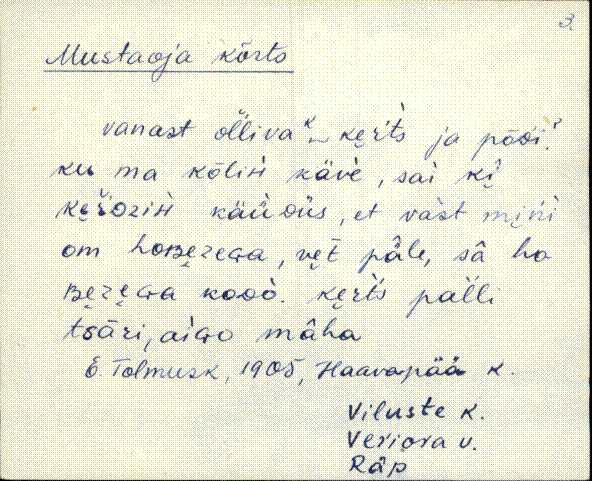 3.
Mustaoja kõrts
vanast olĺiva ke̮ŕts ja põõĺ.
ku ma kõlin käve, sai kî
käüdüs, et vast mińi
om hoʙe̮ze̮ɢa, ve̮t pâle, sâ ho
ʙe̮ze̮ɢa kooo. ke̮ŕts palĺi
tsāri, aiɢo mâha
E. Tolmusk, 1905, Haavapää k.
Viluste k.
Veriora v.
Räp